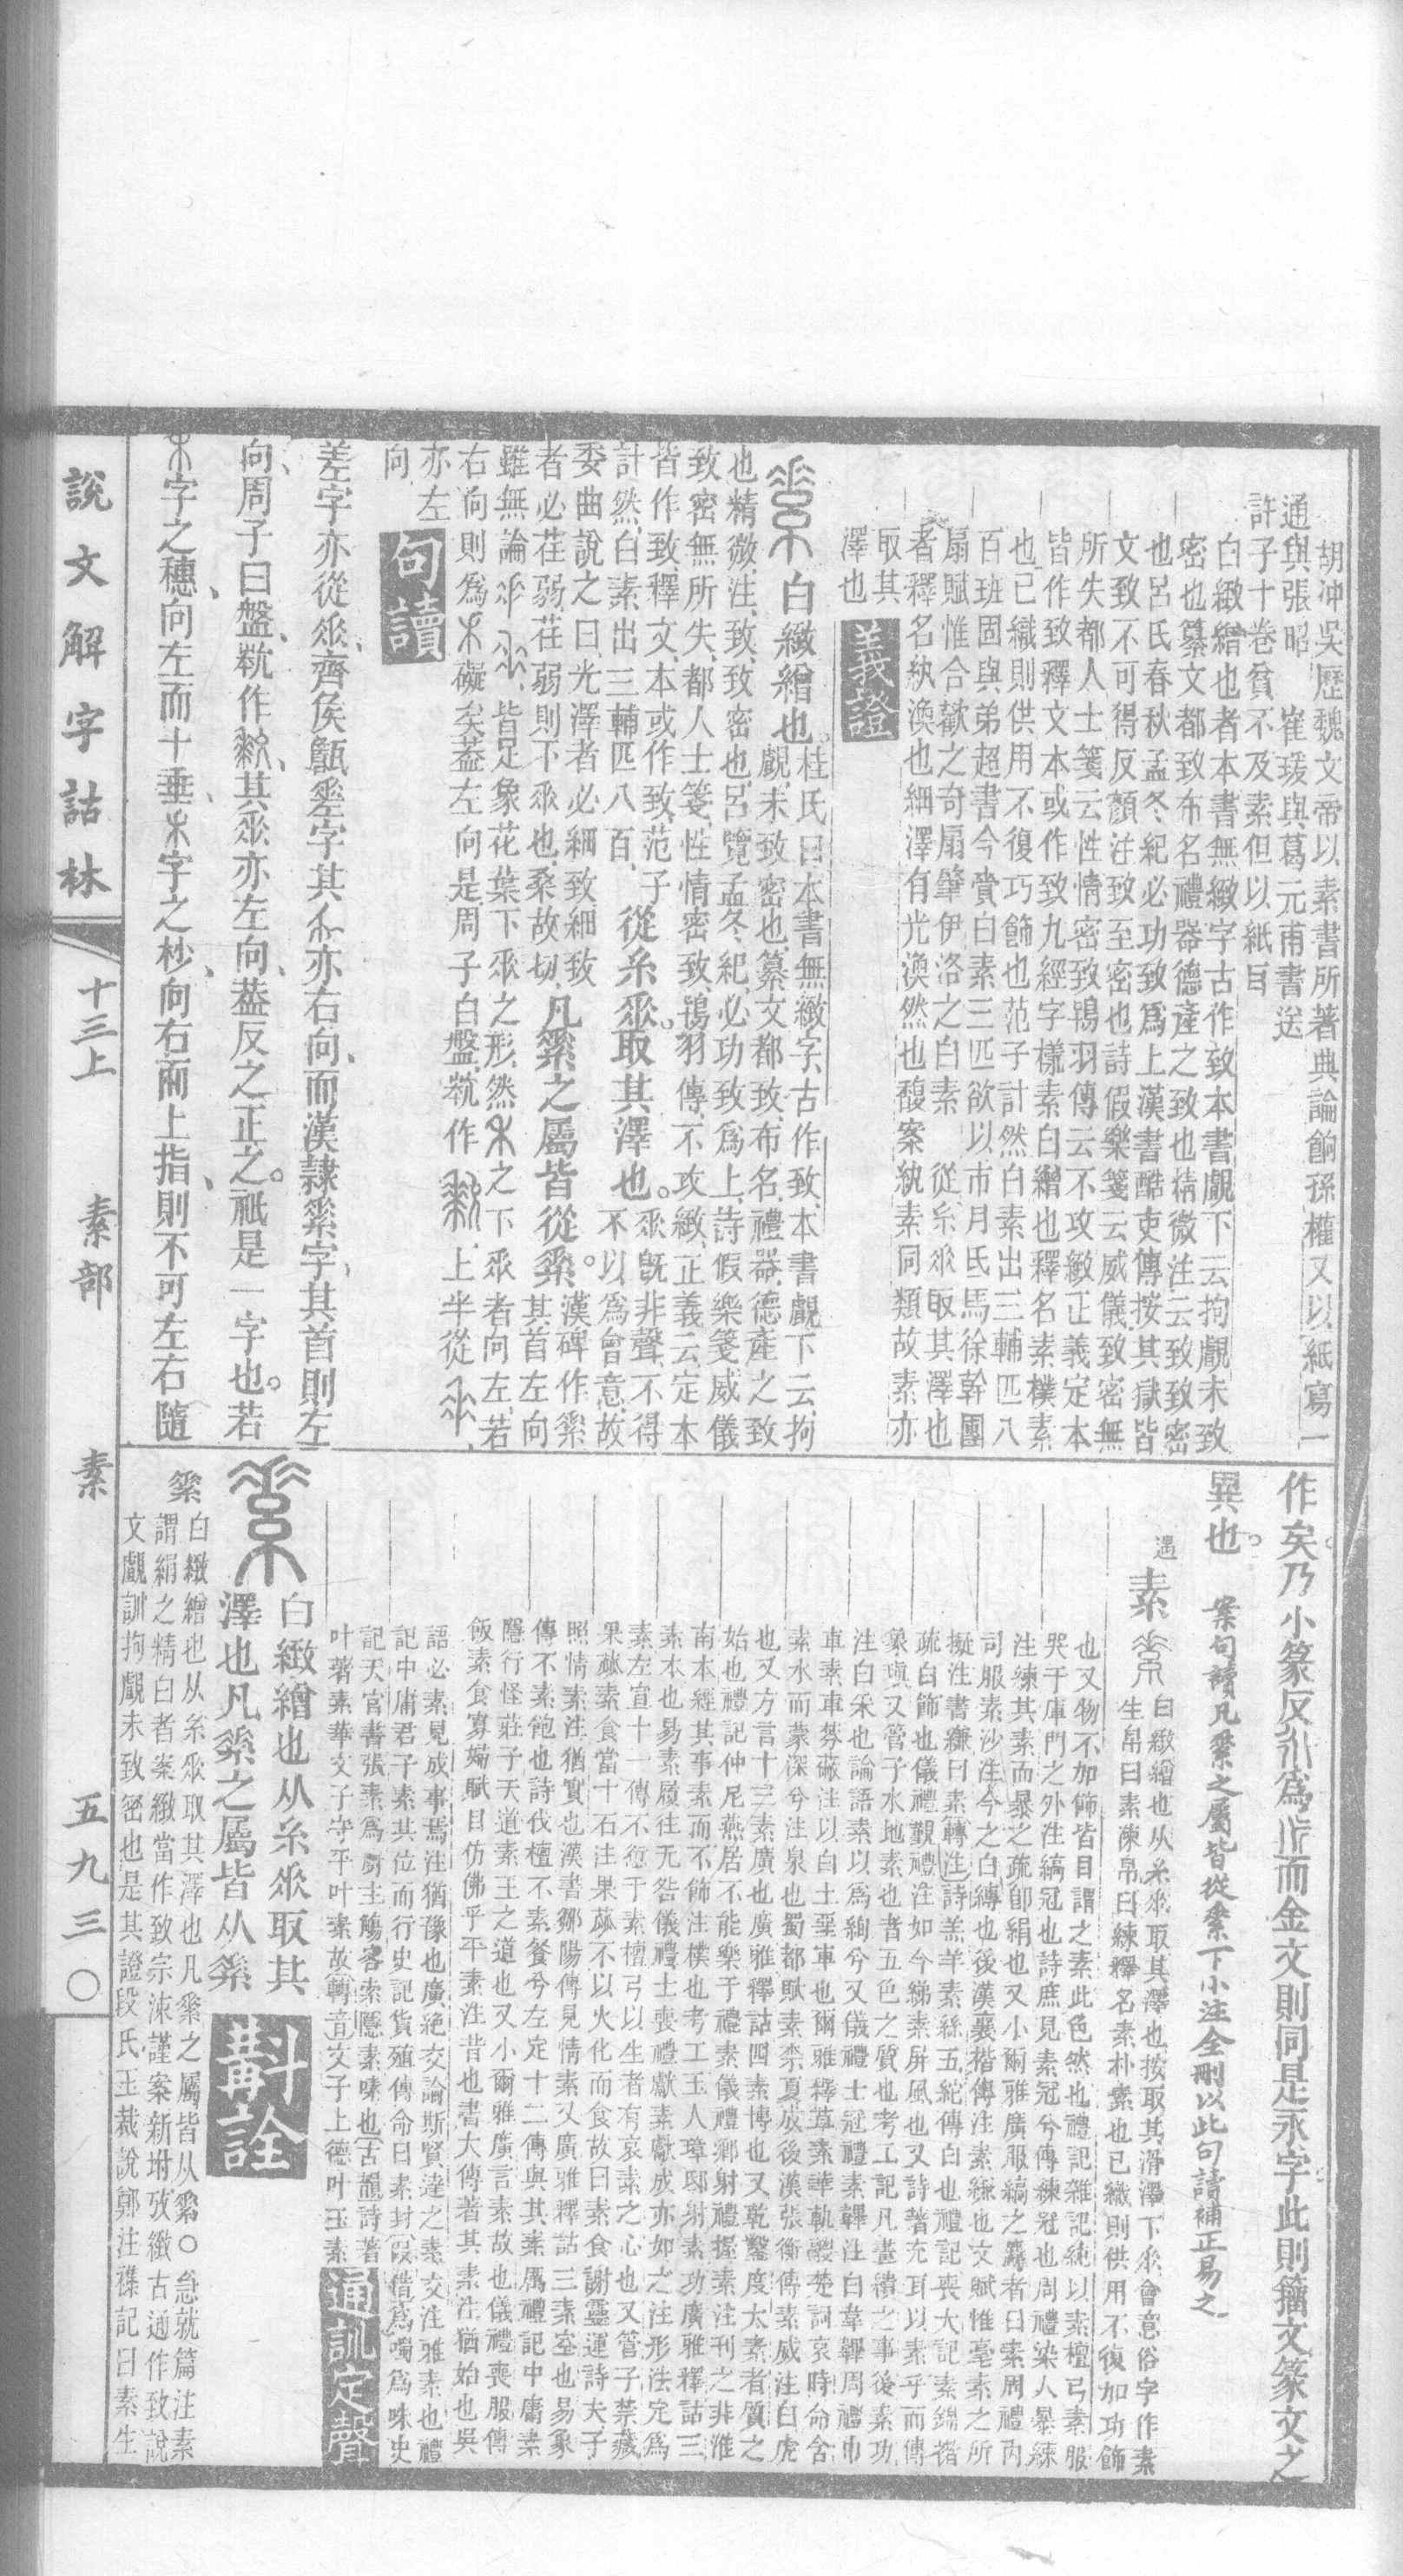 胡沖吳歷魏文帝以素書所著典論餉孫權又以紙寫一
通與張昭　崔瑗與葛元甫書送
許子十卷貧不及素但以紙耳
白緻繒也者本書無緻字古作致本書覰下云拘覰未致
密也纂文都致布名禮器德產之致也精微注云致致密
也呂氏春秋孟冬紀必功致爲上漢書酷吏傳按其獄皆
文致不可得反顏注致至密也詩假樂箋云威儀致密無
所失都人士箋云性情密致鴇羽傳云不攻緻正義定本
皆作致釋文本或作致九經字樣素白繒也釋名素樸素
也已織則供用不復巧飾也范子計然白素出三輔匹八
百班固與弟超書今賫白素三匹欲以市月氏馬徐幹團
扇賦惟合歡之奇扇肇伊洛之白素　從糸𠂹取其澤也
者釋名紈渙也細澤有光渙然也馥案紈素同類故素亦
取其
澤也
義證
白緻繒也。桂氏曰本書無緻字、古作致、本書覰下云、拘
覰、未致密也、纂文都致、布名、禮器、德產之致
也精微、注、致、致密也、呂覽孟冬紀、必功致爲上、詩假樂箋威儀
致密無所失、都人士箋、性情密致、鴇羽傳、不攻緻、正義云、定本
皆作致、釋文、本或作致、范子
計然、白素出三輔匹八百、從糸𠂹。取其澤也。𠂹旣非聲、不得
不以爲會意、故
委曲說之曰、光澤者必細致細致
者必荏弱、荏弱則下𠂹也、桑故切、凡𦃃之屬皆從𦃃。漢碑作𦃃
其首左向
雖無論、皆足象花葉下𠂹之形、然之下𠂹者向左、若
右向則爲礙矣、葢左向是、周子白盤、𠦪作、上半從、
亦左
向
句讀
差字亦從𠂹、齊侯甔𡍮字其亦右向、而漢隸𦃃字、其首則左
向、周子白盤、𠦪作、其𠂹亦左向、葢反之正之。祇是一字也。若
字之穗、向左而十垂、字之杪、向右而上指、則不可左右隨
作矣。乃小篆反爲而金文則同是永字、此則籀文篆文之
異也。　案句讀凡𦃃之屬皆從𦃃下小注全刪以此句請補正易之
遇
素　白緻繒也从糸𠂹取其澤也按取其滑澤下𠂹會意俗字作素
生帛曰素湅帛曰練釋名素朴素也已織則供用不復加功飾
也又物不加飾皆目謂之素此色然也禮記雜記純以素檀弓素服
哭于庫門之外注縞冠也詩庶見素冠兮傳練冠也周禮染人暴練
注練其素而暴之疏卽絹也又小爾雅廣服縞之麤者曰素周禮內
司服素沙注今之白縳也後漢襄楷傳注素縑也文賦惟毫素之所
擬注書縑曰素轉注詩羔羊素絲五紽傳白也禮記喪大記素錦褚
疏白飾也儀禮覲禮注如今綈素屏風也又詩著充耳以素乎而傳
象瑱又管子水地素也者五色之質也考工記凡畫繢之事後素功
注白采也論語素以爲絢兮又儀禮士冠禮素韠注白韋韠周禮巾
車素車棼蔽注以白土堊車也爾雅釋草素華軌鬷楚詞哀時命含
素水而蒙深兮注泉也蜀都賦素柰夏成後漢張衡傳素威注白虎
也又方言十三素廣也廣雅釋詁四素博也又乾鑿度太素者質之
始也禮記仲尼燕居不能樂于禮素儀禮鄉射禮握素注刊之非淮
南本經其事素而不飾注樸也考工玉人璋邸射素功廣雅釋詁三
素本也易素履往无咎儀禮士喪禮獻素獻成亦如之注形法定爲
素左宣十一傳不愆于素檀弓以生者有哀素之心也又管子禁藏
果蓏素食當十石注果蓏不以火化而食故曰素食謝靈運詩夫子
照情素注猶實也漢書鄒陽傳見情素又廣雅釋詁三素空也易象
傳不素飽也詩伐檀不素餐兮左定十二傳與其素厲禮記中庸素
隱行怪莊子天道素王之道也又小爾雅廣言素故也儀禮喪服傳
飯素食寡婦賦目仿佛乎平素注昔也書大傳著其素注猶始也吳
語必素見成事焉注猶豫也廣絕交論斯賢達之素交注雅素也禮
記中庸君子素其位而行史記貨殖傳命曰素封假借爲嗉爲咮史
記天官書張素爲廚主觴客索隱素嗉也古韻詩著
叶著素華文子守平叶素故轉音文子上德叶玉素
通訓定聲
白緻繒也从糸𠂹取其
澤也凡𦃃之屬皆从𦃃
斠詮
𦃃　白緻繒也从糸𠂹取其澤也凡𦃃之屬皆从𦃃○急就篇注素
謂絹之精白者案緻當作致宗洓謹案新坿攷緻古通作致說
文覰訓拘覰未致密也是其證段氏玉裁說鄭注襍記曰素生
說文解字詁林　十三上　素部　素　五九三〇